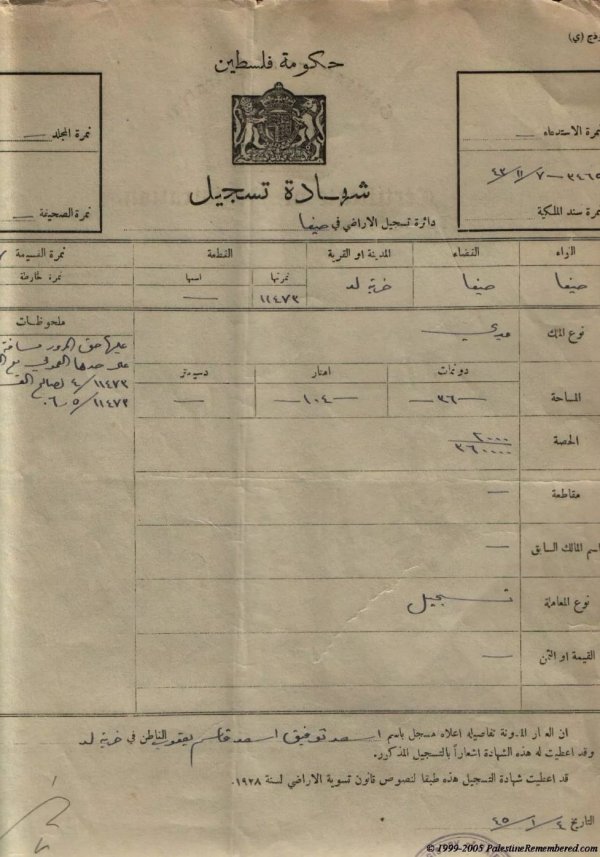 حكومة فلسطين
نمرة الاستدعاء
٣٤٦٥ — ٧/١١/٤٣
نمرة سند الملكية
نمرة المجلد
نمرة الصحيفة
شهادة تسجيل
دائرة تسجيل الاراضي في حيفا
اللواء القضاء المدينة او القرية القطعة نمرة القسيمة
حيفا حيفا خربة لد نمرتها اسمها نمرة خارطة
١١٤٧٣
نوع الملك ميري ملحوظات
عليها حق المرور مسافة
على حدها
١١٤٧٣/٤ لصالح
١١٤٧٣/٥ و ٦
دونمات امتار دسيمتر
المساحة ٣٦ ١٠٤
الحصة ٢٠٠٠
٣٦٠٠٠٠
مقاطعة
اسم المالك السابق
نوع المعاملة تسجيل
القيمة او الثمن
ان العقار المدونة تفاصيله اعلاه مسجل باسم اسعد توفيق اسعد قاسم يعقوب القاطن في خربة لد
وقد اعطيت له هذه الشهادة اشعاراً بالتسجيل المذكور.
قد اعطيت شهادة التسجيل هذه طبقا لنصوص قانون تسوية الاراضي لسنة ١٩٢٨.
التاريخ ٤/١/٤٥
© 1999-2005 PalestineRemembered.com